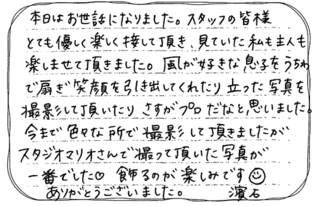 本日はお世話になりました。スタッフの皆様
とても優しく楽しく接して頂き、見ていた私も主人も
楽しませて頂きました。風が好きな息子をうちわ
で扇ぎ笑顔を引き出してくれたり立った写真を
撮影して頂いたりさすがプロだなと思いました。
今まで色々な所で撮影して頂きましたが
スタジオマリオさんで撮って頂いた写真が
一番でした♡ 飾るのが楽しみです☺
ありがとうございました。 濱石